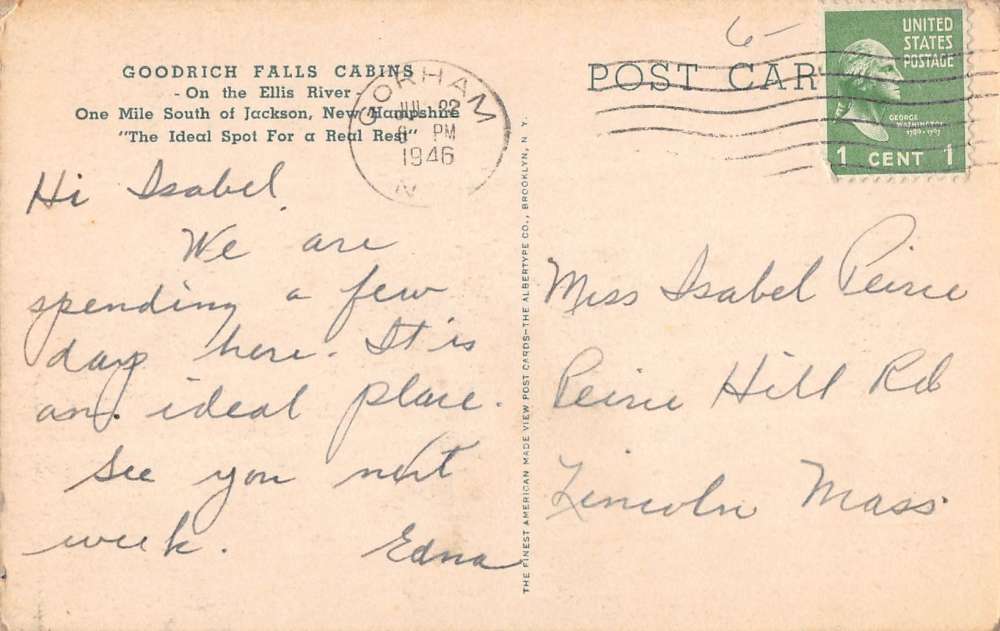 GOODRICH FALLS CABINS
- On the Ellis River -
One Mile South of Jackson, New Hampshire
"The Ideal Spot For a Real Rest"
GORHAM
JUL 22
8 PM
1946
N
Hi Isabel.
We are
spending a few
days here. It is
an ideal place.
See you next
week. Edna
THE FINEST AMERICAN MADE VIEW POST CARDS—THE ALBERTYPE CO., BROOKLYN, N.Y.
6-
POST CAR
UNITED
STATES
POSTAGE
GEORGE
WASHINGTON
1789-1797
1 CENT 1
Miss Isabel Peirce
Peirce Hill Rd
Lincoln Mass.